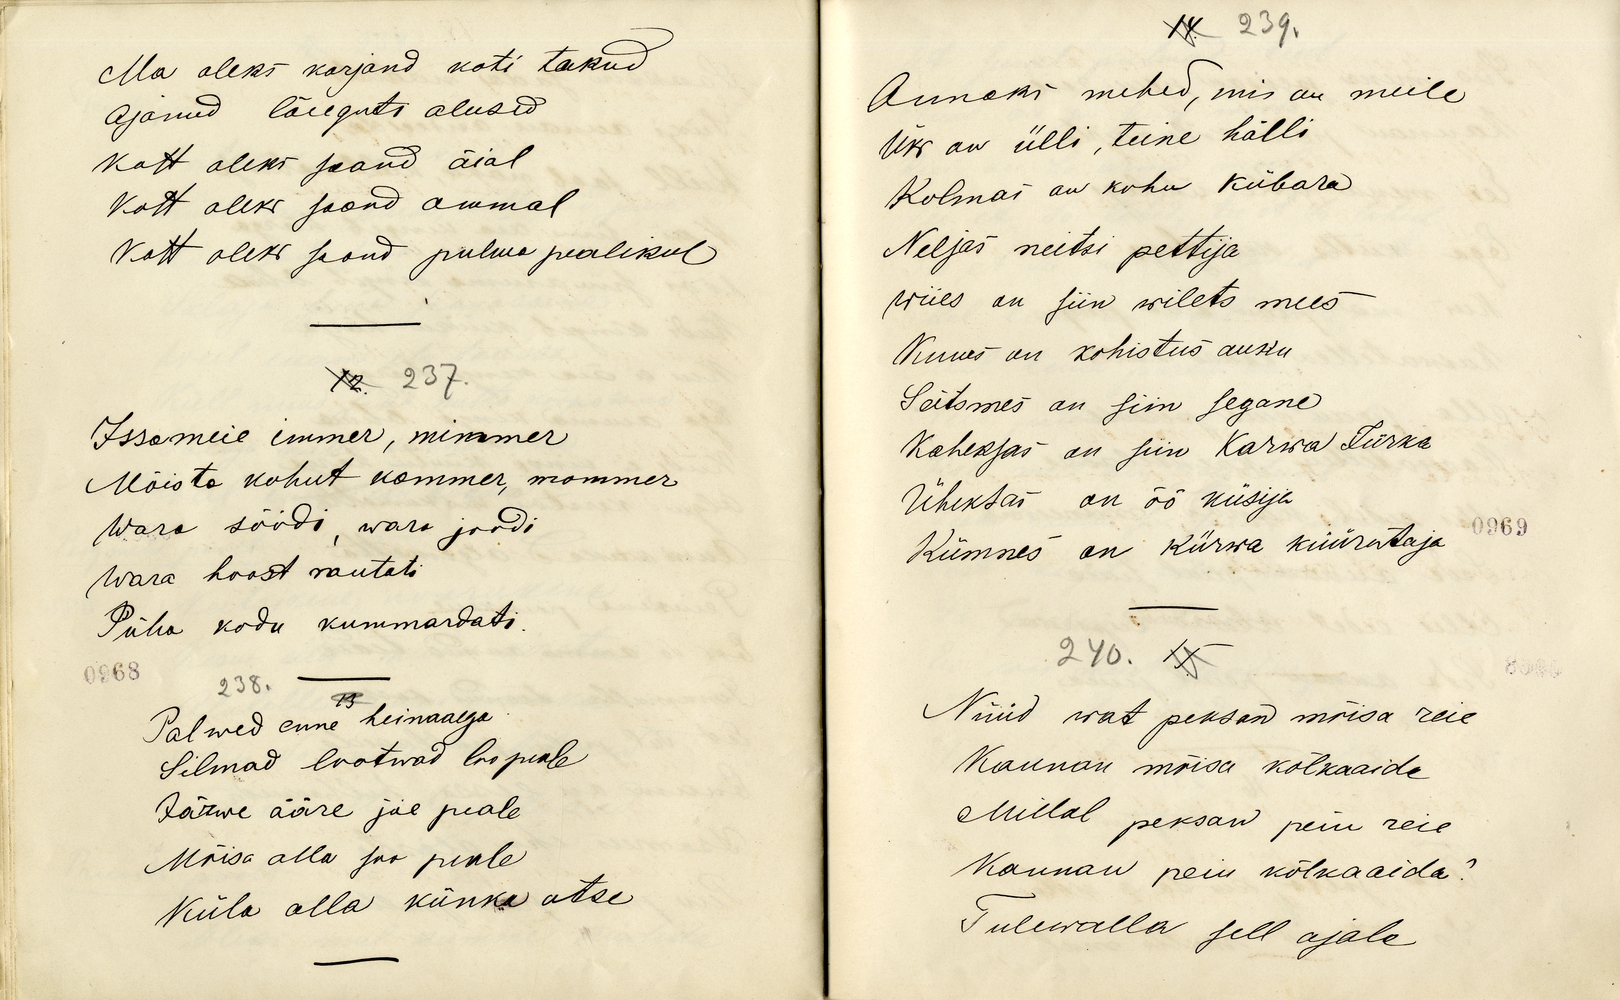 Ma oleks karjand koti takud
Ajanud läeguts alused
Kott oleks saand äial
Kott oleks saand ämmal
Kott oleks saand pulma pealikul
12. 237.
Issameie immer, mimmer
Mõista kohut kommer, mommer
Wara söödi, wara joodi
Wara hoost rautati
Püha kodu kummardati.
0968
238. 13
Palwed enne heinaaega
Silmad lootwad loo peale
Järwe ääre jõe peale
Mõisa alla soo peale
Küla alla künka otse
14. 239.
Annaks mehed, mis on meile
Üks on ülli, teine hälli
Kolmas on kohu kübara
Neljas neitsi pettija
wiies on siin wilets mees
Kuues on kohistus auku
Seitsmes on siin segane
Kaheksas on siin Karwa Jürka
Üheksas on öö küsija
Kümnes on kürwa küürutaja
0969
240. 15
Nüüd wat peksan mõisa reie
Kannan mõisa kõlkaaida
Millal peksan peiu reie
Kannan peiu kõlkaaida?
Tulewalla sell ajale